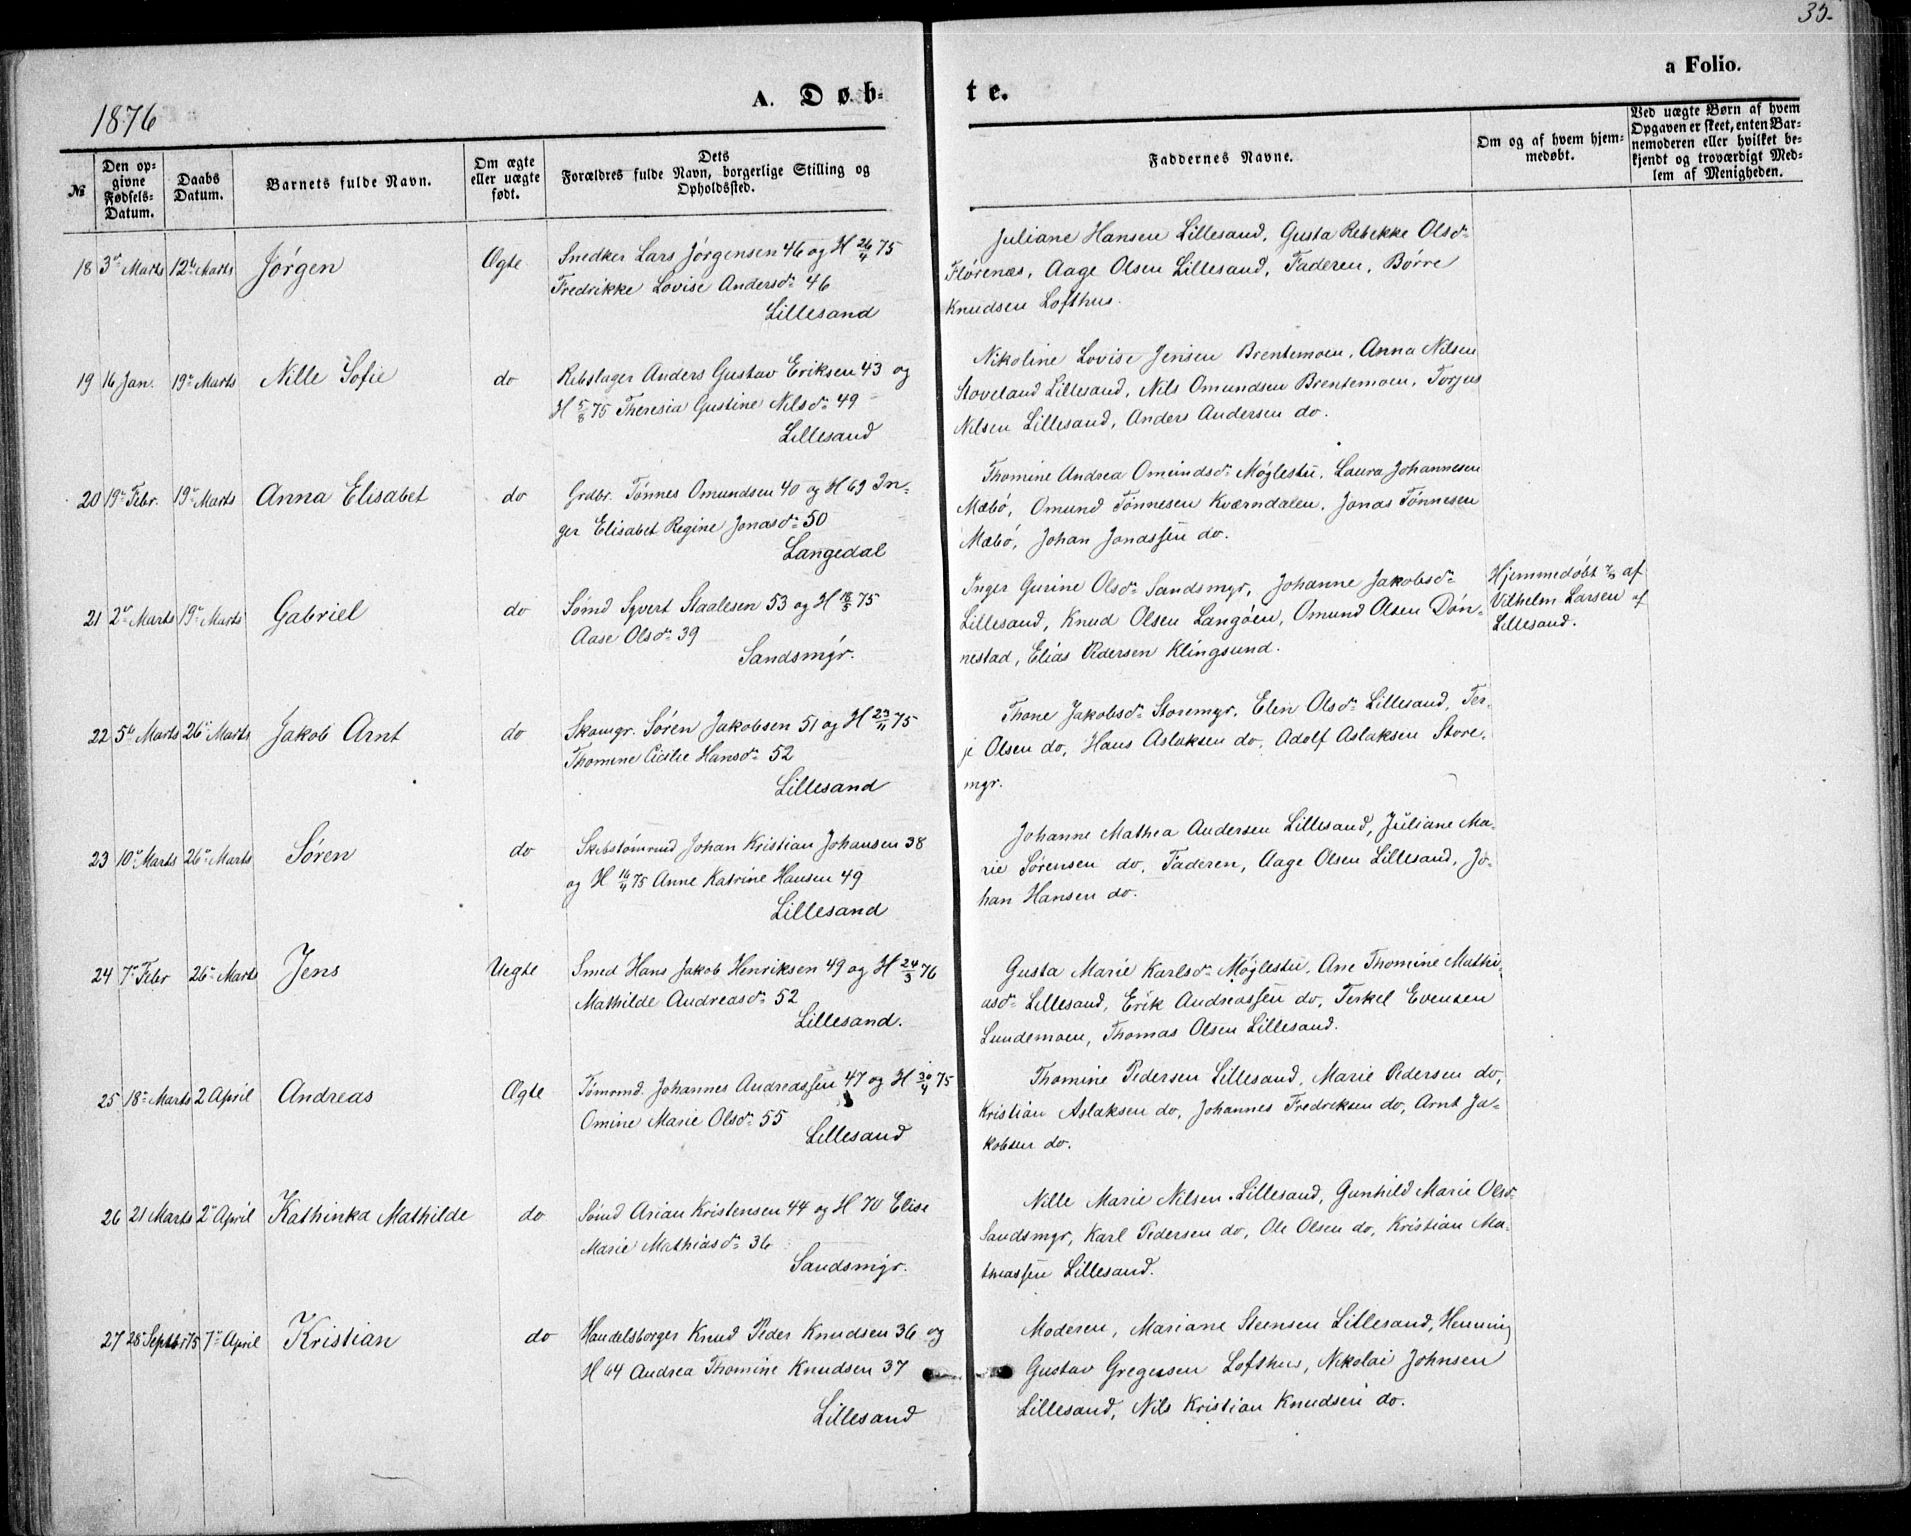 35.
a Folio.
1876
A. Døb-
te.
№
Den op-
givne
Fødsels-
Datum.
Daabs
Datum.
Barnets fulde Navn.
Om ægte
eller uægte
født.
Dets
Forældres fulde Navn, borgerlige Stilling og
Opholdssted.
Faddernes Navne.
Om og af hvem hjem-
medøbt.
Ved uægte Børn af hvem
Opgaven er skeet, enten Bar-
nemoderen eller hvilket be-
kjendt og troværdigt Med-
lem af Menigheden.
18 3die Marts 12te Marts Jørgen Ægte Snedker Lars Jørgensen 46 og H 26/4 75
Fredrikke Lovise Andersdr 46
Lillesand
Juliane Hansen Lillesand, Gusta Rebekke Olsdr
Flørenæs, Aage Olsen Lillesand, Faderen, Børre
Knudsen Lofthus.
19 16 Jan. 19de Marts Nille Sofie do Rebslager Anders Gustav Eriksen 43 og
H 5/8 75 Theresia Gustine Nilsdr 49
Lillesand
Nikoline Lovise Jensen Brentemoen, Anna Nilsen
Stoveland Lillesand, Nils Omundsen Brentemoen, Torjus
Nilsen Lillesand, Anders Andersen do.
20 19de Febr. 19de Marts Anna Elisabet do Grdbr. Tønnes Omundsen 40 og H 69 In-
ger Elisabet Regine Jonasdr 50
Langedal
Thomine Andrea Omundsdr Møglestu, Laura Johannesen
Mæbø, Omund Tønnesen Kværndalen, Jonas Tønnesen
Mæbø, Johan Jonassen do.
21 2den Marts 19de Marts Gabriel do Sømd Syvert Staalesen 53 og H 18/5 75
Aase Olsdr 39
Sandsmyr.
Inger Gurine Olsdr Sandsmyr, Johanne Jakobsdr
Lillesand, Knud Olsen Langøen, Omund Olsen Døn-
nestad, Elias Pedersen Klingsund.
Hjemmedøbt af
Vilhelm Larsen af
Lillesand.
22 5te Marts 26de Marts Jakob Arnt do Skomgr. Søren Jakobsen 51 og H 23/11 75
Thomine Cicilie Hansdr 52
Lillesand
Thone Jakobsdr Storemyr, Elen Olsdr Lillesand, Ter-
je Olsen do, Hans Aslaksen do, Adolf Aslaksen Store-
myr.
23 10de Marts 26de Marts Søren do Skibstømrmd Johan Kristian Johansen 38
og H 16/4 75 Anne Katrine Hansen 49
Lillesand
Johanne Mathea Andersen Lillesand, Juliane Ma-
rie Sørensen do, Faderen, Aage Olsen Lillesand, Jo-
han Hansen do.
24 7de Febr 26de Marts Jens Uegte Smed Hans Jakob Henriksen 49 og H 24/3 76
Mathilde Andreasdr 52
Lillesand.
Gusta Marie Karlsdr Møglestu, Ane Thomine Mathi-
asdr Lillesand, Erik Andreassen do, Terkel Evensen
Lundemoen, Thomas Olsen Lillesand.
25 18de Marts 2 April Andreas Ægte Tømrmd. Johannes Andreassen 47 og H 30/4 75
Omine Marie Olsdr 55
Lillesand
Thomine Pedersen Lillesand, Marie Pedersen do,
Kristian Aslaksen do, Johannes Fredriksen do, Arnt Ja-
kobsen do.
26 21 Marts 2den April Kathinka Mathilde do Sømd Arian Kristensen 44 og H 70 Elise
Marie Mathiasdr 36
Sandsmyr.
Nille Marie Nilsen Lillesand, Gunhild Marie Olsdr
Sandsmyr, Karl Pedersen do, Ole Olsen do, Kristian Ma-
thiassen Lillesand.
27 28de Septbr 75 7de April Kristian do Handelsborger Knud Peder Knudsen 36 og
H 64 Andrea Thomine Knudsen 37
Lillesand
Moderen, Mariane Steensen Lillesand, Henning
Gustav Gregersen Lofthus, Nikolai Johnsen
Lillesand, Nils Kristian Knudsen do.